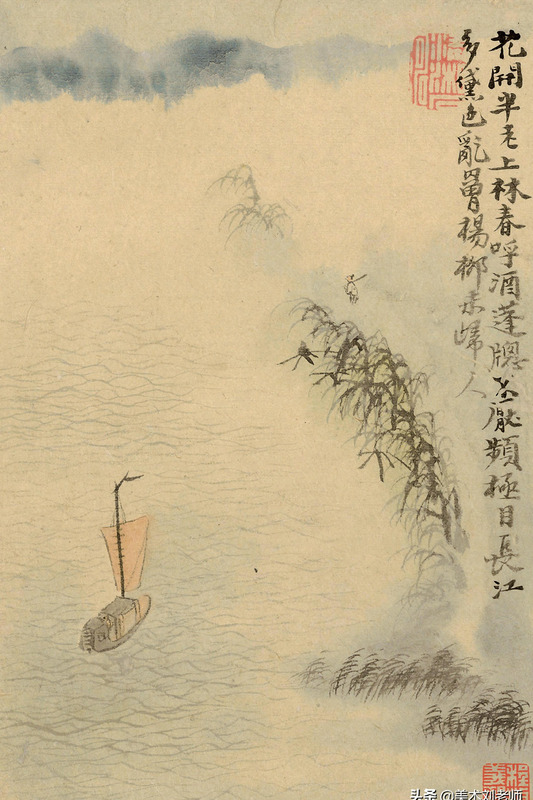 花開半老上林春呼酒蓬牕不厭頻極目長江
多黛色亂楊柳未歸人
头条 @美术刘老师